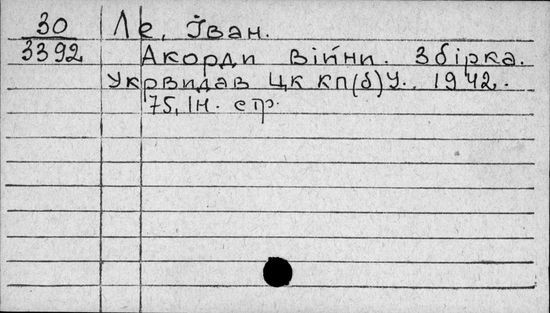 30 Ле, Іван.
3392 Акорди війни. Збірка.
Укрвидав ЦК КП(б)У. 1942.
75, 1н. стр.